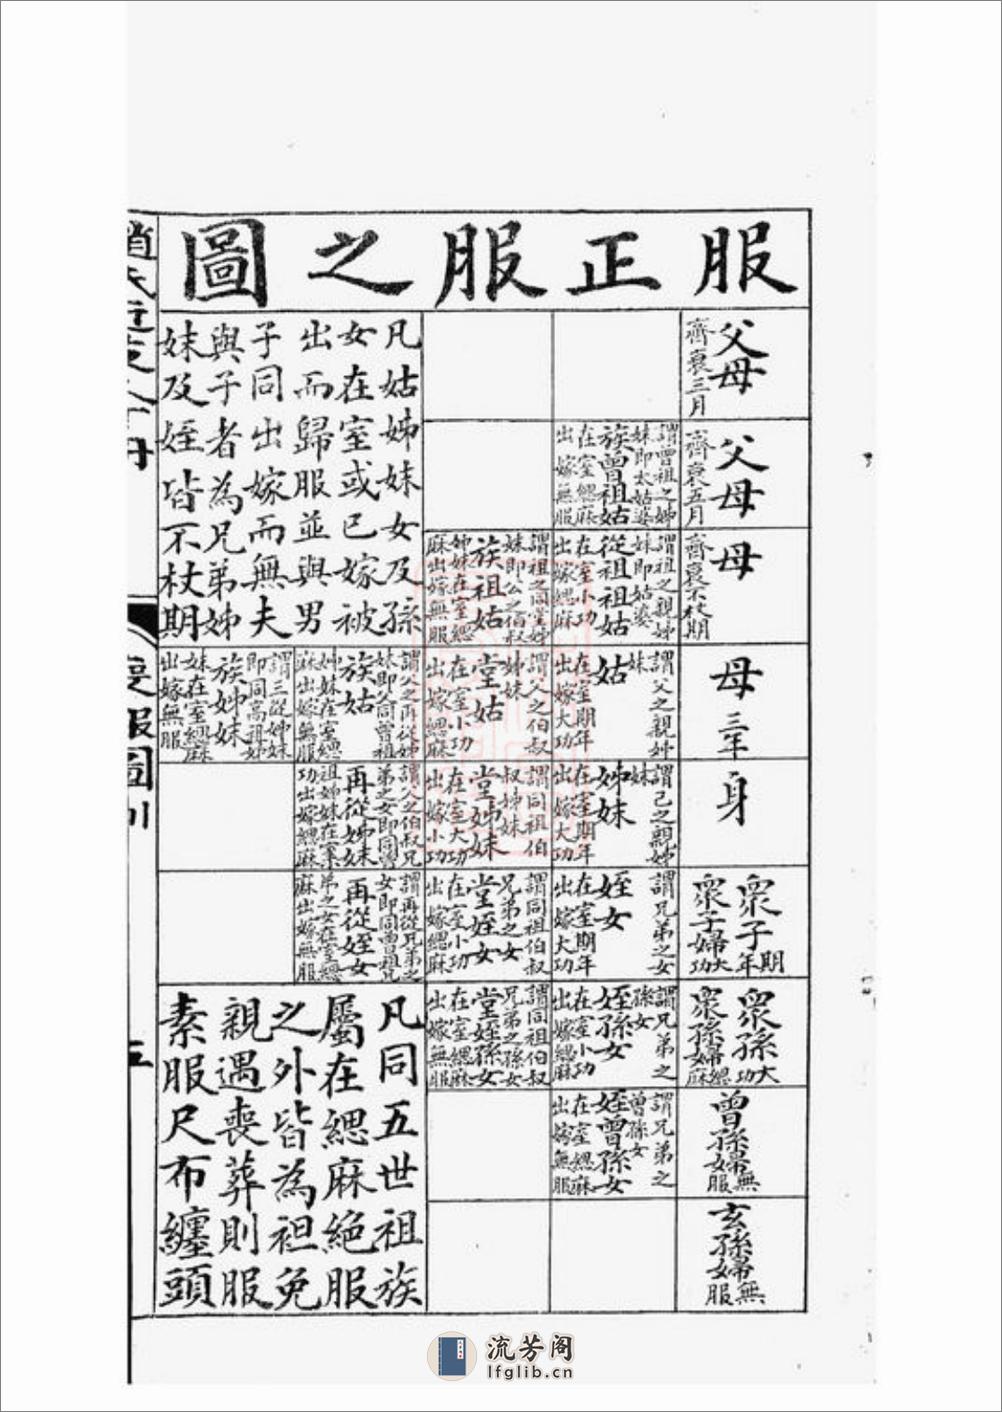 服正服之圖
父母
齊衰三月
父母
齊衰五月
母
齊衰不杖期
母
三年
身
眾子
期年
眾子婦
大功
眾孫
大功
眾孫婦
緦麻
曾孫婦
無服
玄孫婦
無服
謂曾祖之姊
妹即太姑婆
族曾祖姑
在室緦麻
出嫁無服
謂祖之親姊
妹即姑婆
從祖祖姑
在室小功
出嫁緦麻
謂父之親姊
妹
姑
在室期年
出嫁大功
謂己之親姊
妹
姊妹
在室期年
出嫁大功
謂兄弟之女
姪女
在室期年
出嫁大功
謂兄弟之
孫女
姪孫女
在室小功
出嫁緦麻
謂兄弟之
曾孫女
姪曾孫女
在室緦麻
出嫁無服
謂祖之同堂姊
妹即公之伯叔
族祖姑
姊妹在室緦
麻出嫁無服
謂父之伯叔
姊妹
堂姑
在室小功
出嫁緦麻
謂同祖伯
叔姊妹
堂姊妹
在室大功
出嫁小功
謂同祖伯叔
兄弟之女
堂姪女
在室小功
出嫁緦麻
謂同祖伯叔
兄弟之孫女
堂姪孫女
在室緦麻
出嫁無服
謂父之再從姊
妹即父同曾祖
族姑
姊妹在室緦
麻出嫁無服
謂父之伯叔兄
弟之女即同曾
再從姊妹
祖姊妹在室小
功出嫁緦麻
謂再從兄弟之
女即同曾祖兄
再從姪女
弟之女在室緦
麻出嫁無服
謂三從姊妹
即同高祖姊
族姊妹
妹在室緦麻
出嫁無服
凡姑姊妹女及孫
女在室或已嫁被
出而歸服並與男
子同出嫁而無夫
與子者為兄弟姊
妹及姪皆不杖期
凡同五世祖族
屬在緦麻絕服
之外皆為袒免
親遇喪葬則服
素服尺布纏頭
流芳阁
lfglib.cn